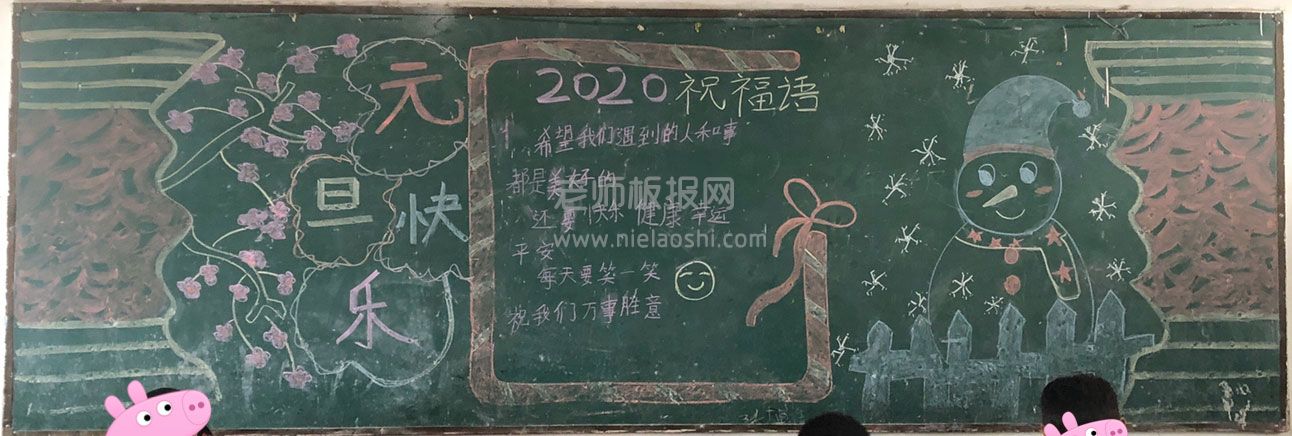 元
旦快
乐
2020祝福语
希望我们遇到的人和事
都是美好的
还要快乐 健康 幸运
平安
每天要笑一笑
祝我们万事胜意
老师板报网
www.nielaoshi.com